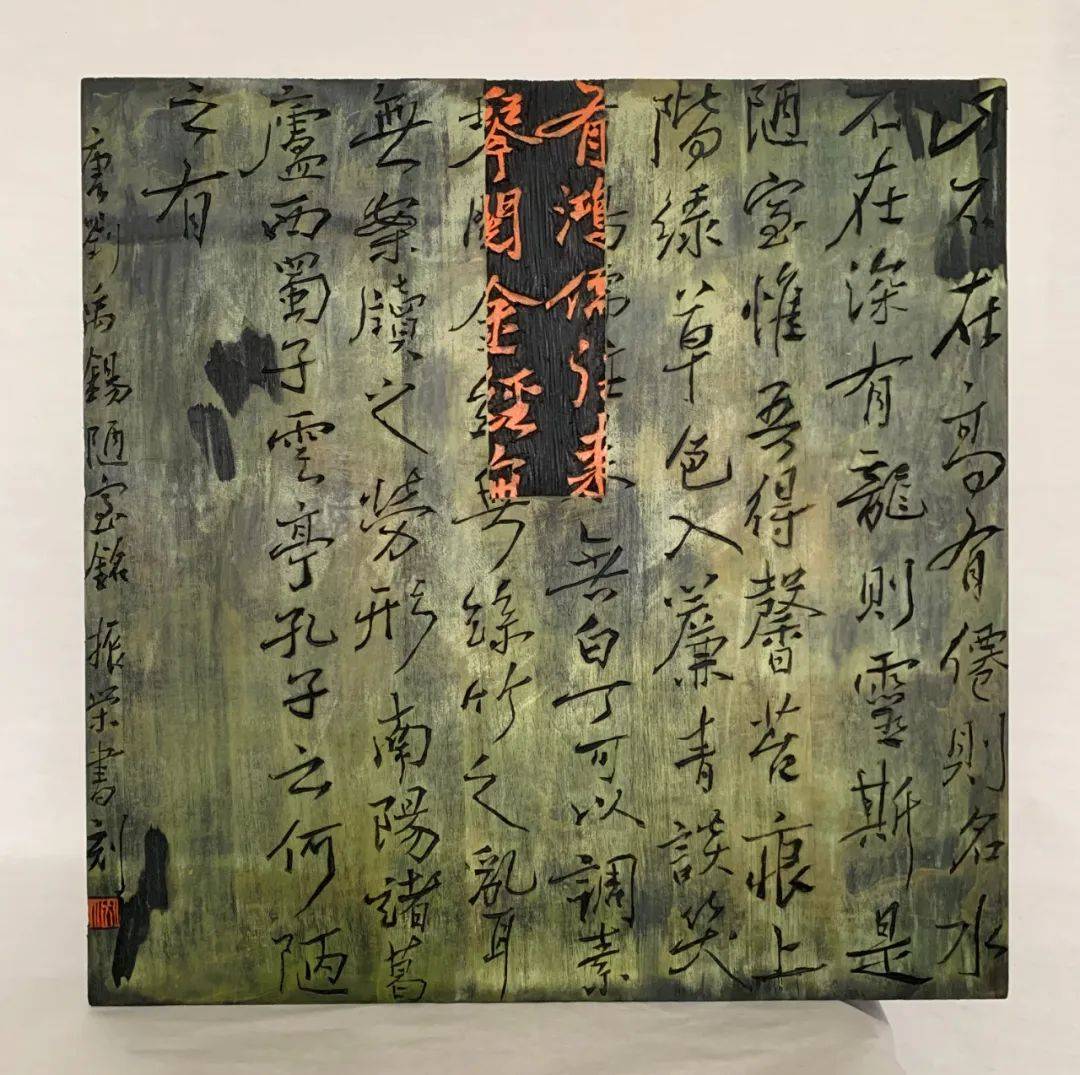 山不在高有僊則名水
不在深有龍則靈斯是
陋室惟吾得馨苔痕上
階綠草色入簾青談笑
有鴻儒往來無白丁可以調素
琴閱金經無絲竹之亂耳
無案牘之勞形南陽諸葛
廬西蜀子雲亭孔子云何陋
之有
唐劉禹錫陋室銘振榮書刻